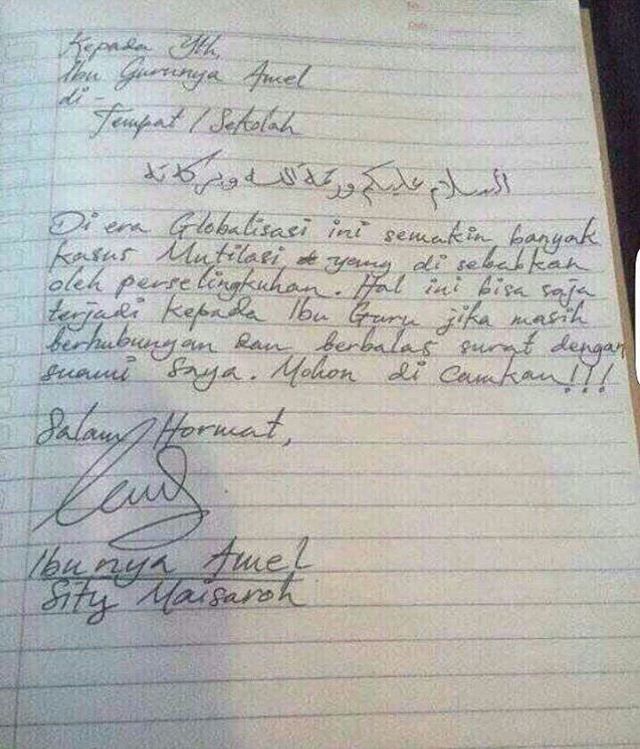 Kepada Yth,
Ibu Gurunya Amel
di -
Tempat / Sekolah
السلام عليكم ورحمة الله وبركاته
Di era Globalisasi ini semakin banyak
kasus Mutilasi yang di sebabkan
oleh perselingkuhan. Hal ini bisa saja
terjadi kepada Ibu Guru jika masih
berhubungan dan berbalas surat dengan
suami saya. Mohon di camkan!!!
Salam Hormat,
Ibunya Amel
Sity Maisaroh